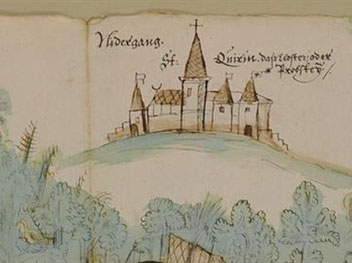 Nidergang.
St: Quirin. das closter oder
Probstey /